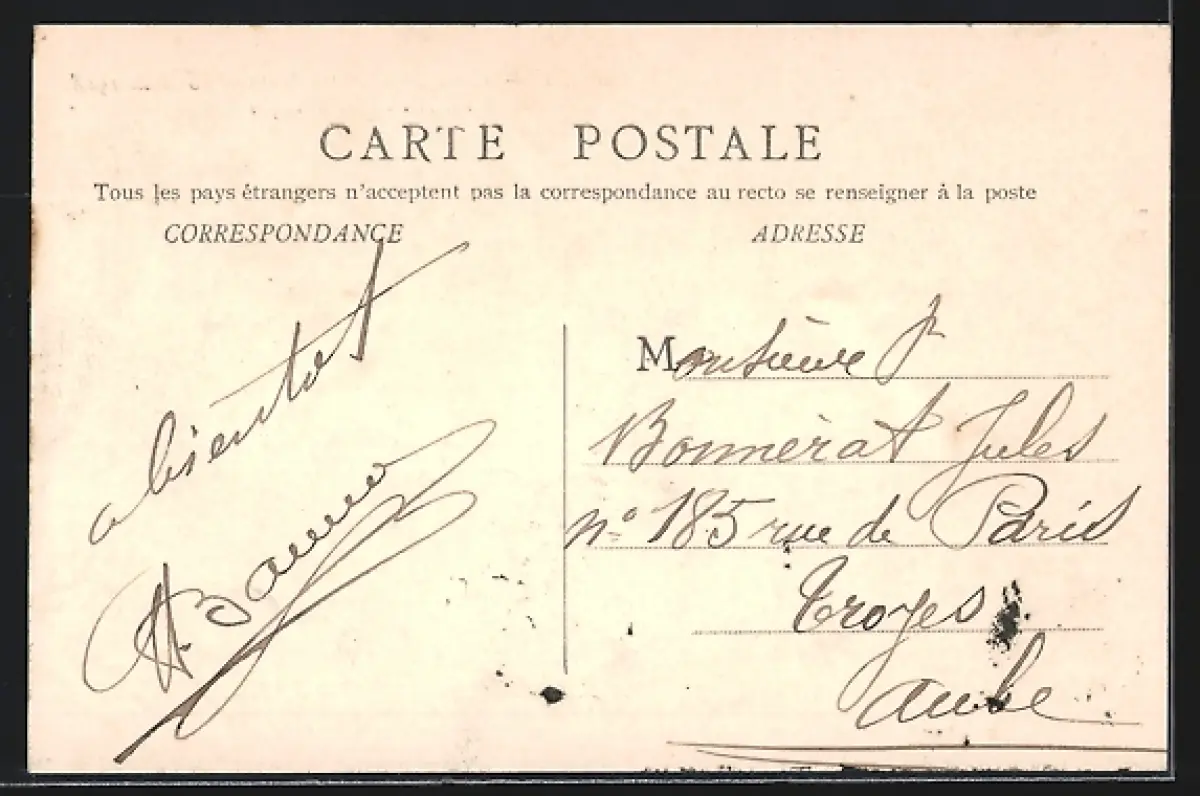 CARTE POSTALE
Tous les pays étrangers n'acceptent pas la correspondance au recto se renseigner à la poste
CORRESPONDANCE
ADRESSE
a bientot
Monsieure
Bonnerat Jules
n° 185 rue de Paris
Troyes
Aube